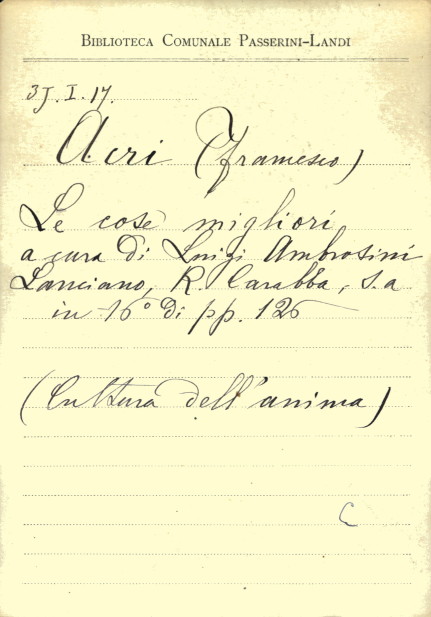 BIBLIOTECA COMUNALE PASSERINI-LANDI
3J. I. 17.
Acri (Francesco)
Le cose migliori
a cura di Luigi Ambrosini
Lanciano, R. Carabba, s.a
in 16° di pp. 126
(Cultura dell'anima)
C